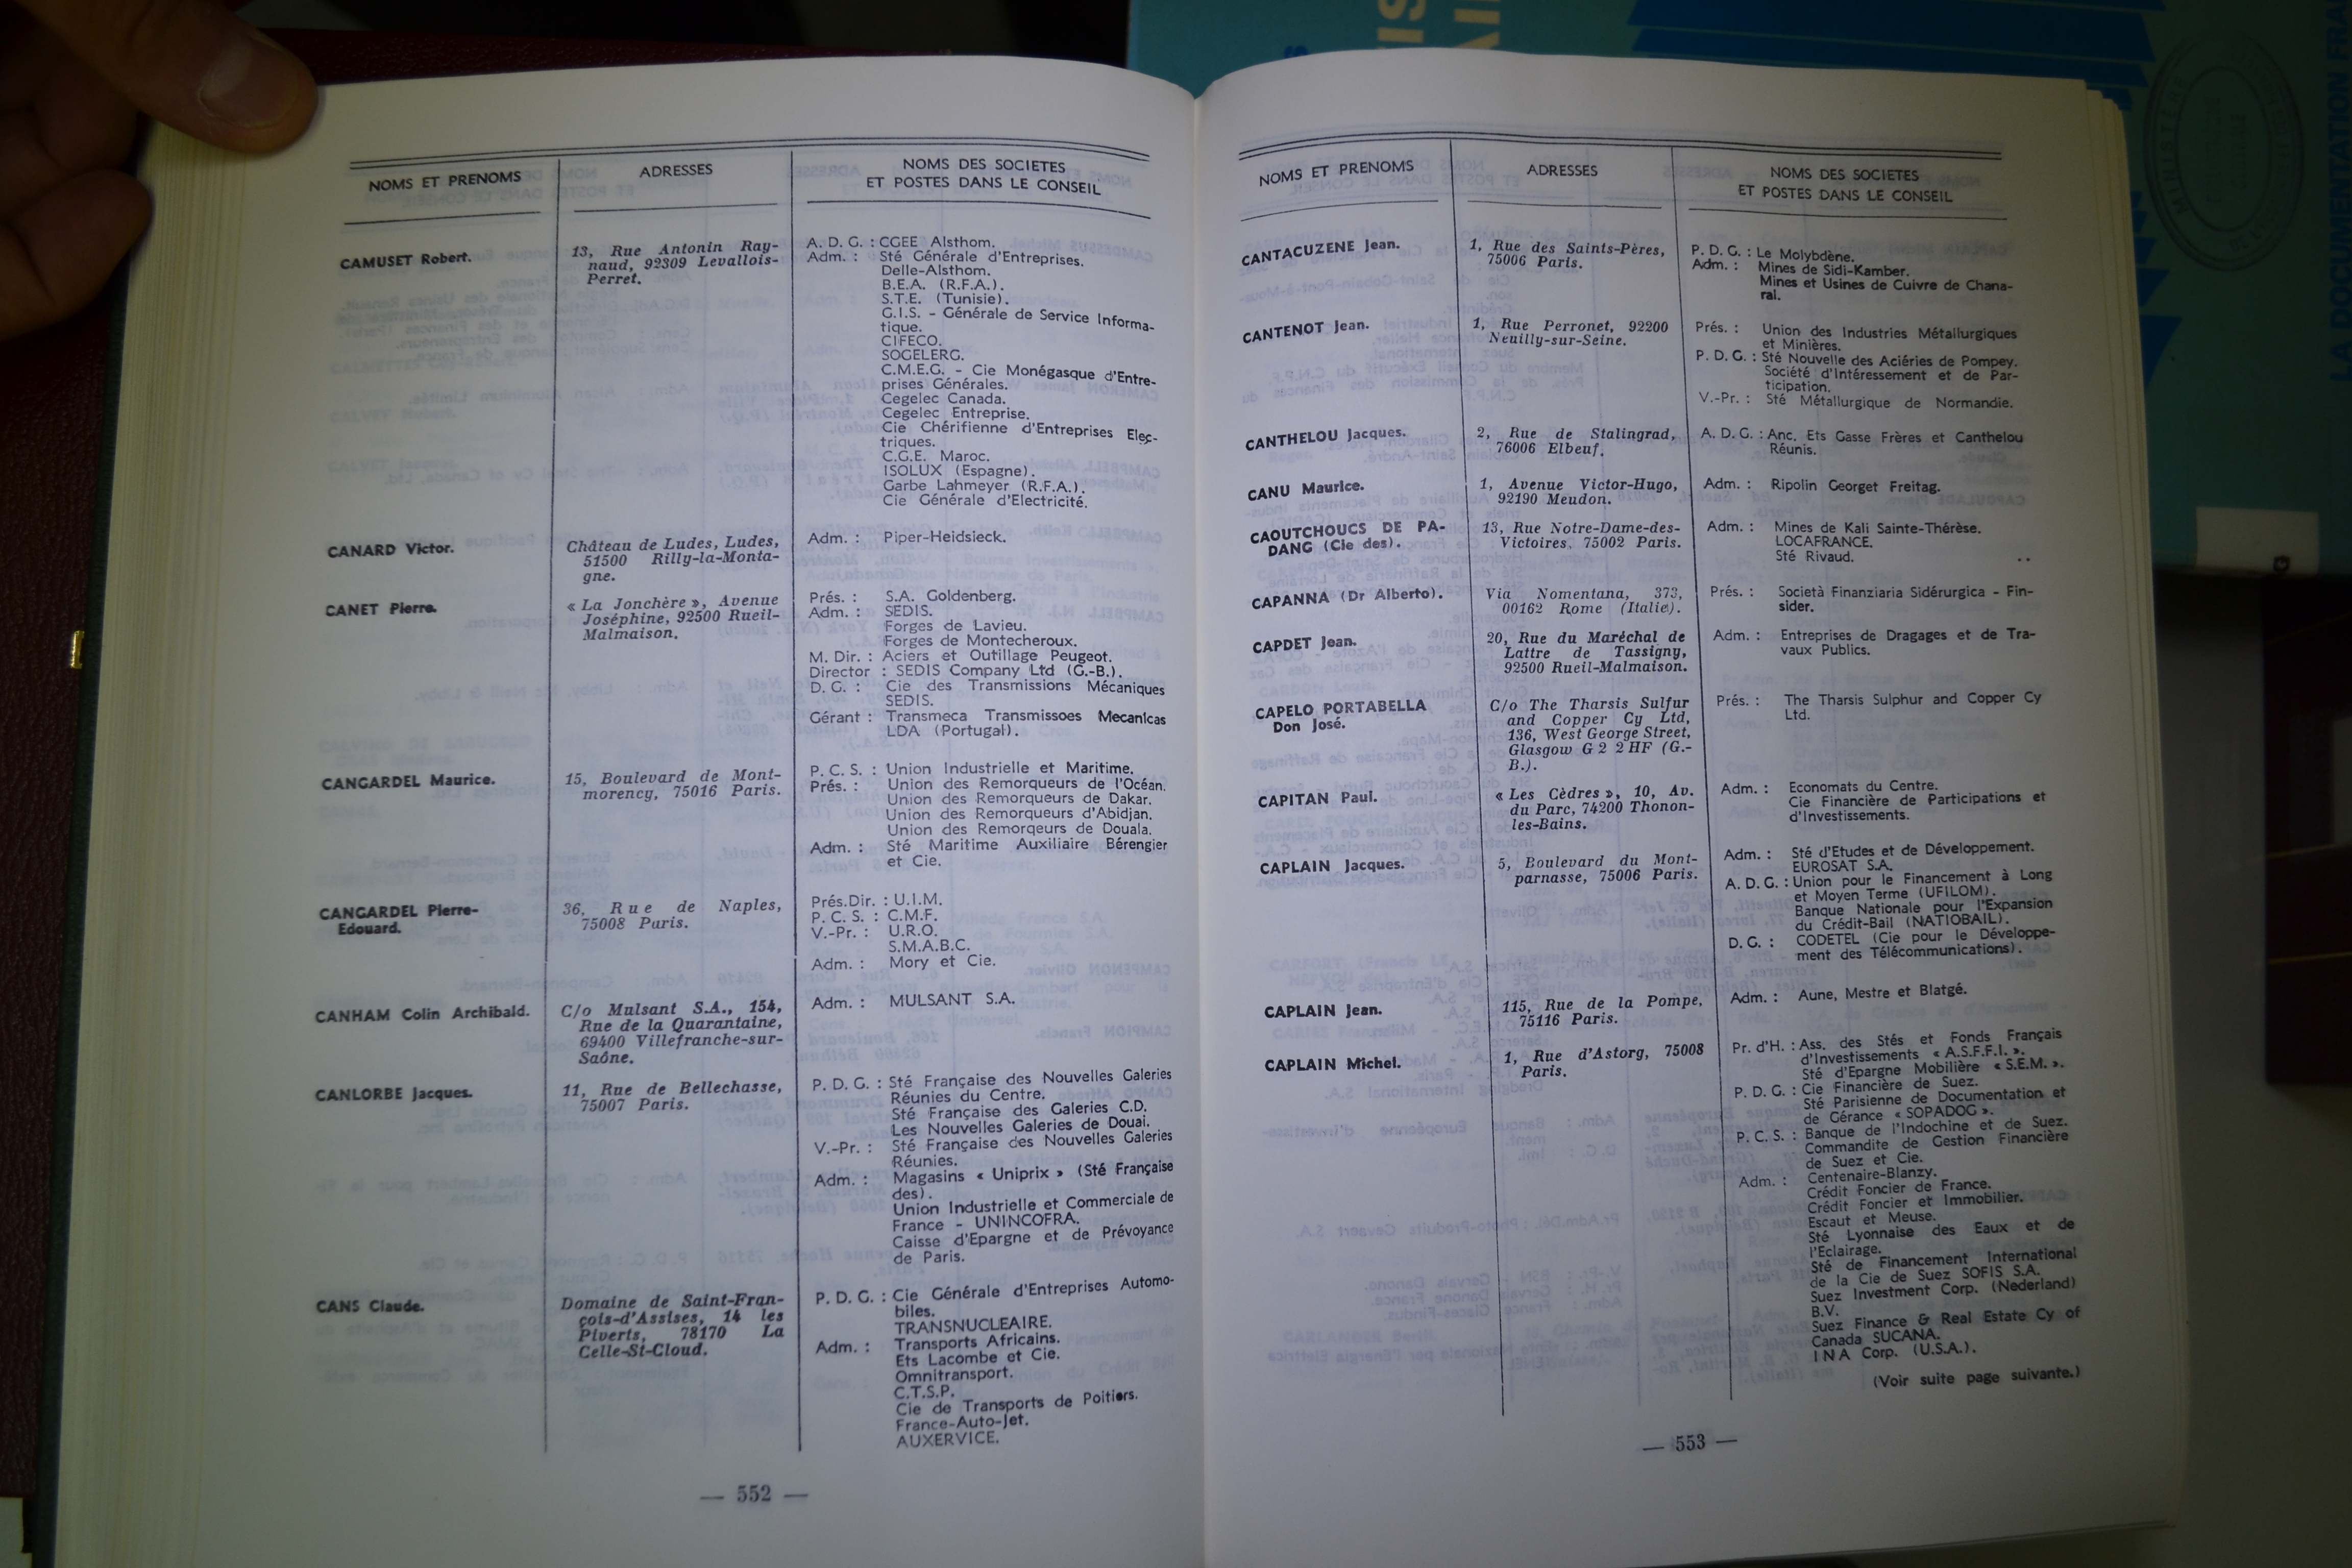 NOMS ET PRENOMS
ADRESSES
NOMS DES SOCIETES
ET POSTES DANS LE CONSEIL
CAMUSET Robert.
13, Rue Antonin Ray-
naud, 92309 Levallois-
Perret.
A. D. G. : CGEE Alsthom.
Adm. : Sté Générale d'Entreprises.
Delle-Alsthom.
B.E.A. (R.F.A.).
S.T.E. (Tunisie).
G.I.S. - Générale de Service Informa-
tique.
CIFECO.
SOGELERG.
C.M.E.G. - Cie Monégasque d'Entre-
prises Générales.
Cegelec Canada.
Cegelec Entreprise.
Cie Chérifienne d'Entreprises Elec-
triques.
C.G.E. Maroc.
ISOLUX (Espagne).
Garbe Lahmeyer (R.F.A.).
Cie Générale d'Electricité.
CANARD Victor.
Château de Ludes, Ludes,
51500 Rilly-la-Monta-
gne.
Adm. : Piper-Heidsieck.
CANET Pierre.
« La Jonchère », Avenue
Joséphine, 92500 Rueil-
Malmaison.
Prés. : S.A. Goldenberg.
Adm. : SEDIS.
Forges de Lavieu.
Forges de Montecheroux.
M. Dir. : Aciers et Outillage Peugeot.
Director : SEDIS Company Ltd (G.-B.).
D. G. : Cie des Transmissions Mécaniques
SEDIS.
Gérant : Transmeca Transmissoes Mecanicas
LDA (Portugal).
CANGARDEL Maurice.
15, Boulevard de Mont-
morency, 75016 Paris.
P. C. S. : Union Industrielle et Maritime.
Prés. : Union des Remorqueurs de l'Océan.
Union des Remorqueurs de Dakar.
Union des Remorqueurs d'Abidjan.
Union des Remorqeurs de Douala.
Adm. : Sté Maritime Auxiliaire Bérengier
et Cie.
CANGARDEL Pierre-
Edouard.
36, Rue de Naples,
75008 Paris.
Prés.Dir. : U.I.M.
P. C. S. : C.M.F.
V.-Pr. : U.R.O.
S.M.A.B.C.
Adm. : Mory et Cie.
CANHAM Colin Archibald.
C/o Mulsant S.A., 154,
Rue de la Quarantaine,
69400 Villefranche-sur-
Saône.
Adm. : MULSANT S.A.
CANLORBE Jacques.
11, Rue de Bellechasse,
75007 Paris.
P. D. G. : Sté Française des Nouvelles Galeries
Réunies du Centre.
Sté Française des Galeries C.D.
Les Nouvelles Galeries de Douai.
V.-Pr. : Sté Française des Nouvelles Galeries
Réunies.
Adm. : Magasins « Uniprix » (Sté Française
des).
Union Industrielle et Commerciale de
France - UNINCOFRA.
Caisse d'Epargne et de Prévoyance
de Paris.
CANS Claude.
Domaine de Saint-Fran-
çois-d'Assises, 14 les
Piverts, 78170 La
Celle-St-Cloud.
P. D. G. : Cie Générale d'Entreprises Automo-
biles.
TRANSNUCLEAIRE.
Adm. : Transports Africains.
Ets Lacombe et Cie.
Omnitransport.
C.T.S.P.
Cie de Transports de Poitiers.
France-Auto-Jet.
AUXERVICE.
— 552 —
NOMS ET PRENOMS
ADRESSES
NOMS DES SOCIETES
ET POSTES DANS LE CONSEIL
CANTACUZENE Jean.
1, Rue des Saints-Pères,
75006 Paris.
P. D. G. : Le Molybdène.
Adm. : Mines de Sidi-Kamber.
Mines et Usines de Cuivre de Chana-
ral.
CANTENOT Jean.
1, Rue Perronet, 92200
Neuilly-sur-Seine.
Prés. : Union des Industries Métallurgiques
et Minières.
P. D. G. : Sté Nouvelle des Aciéries de Pompey.
Société d'Intéressement et de Par-
ticipation.
V.-Pr. : Sté Métallurgique de Normandie.
CANTHELOU Jacques.
2, Rue de Stalingrad,
76006 Elbeuf.
A. D. G. : Anc. Ets Gasse Frères et Canthelou
Réunis.
CANU Maurice.
1, Avenue Victor-Hugo,
92190 Meudon.
Adm. : Ripolin Georget Freitag.
CAOUTCHOUCS DE PA-
DANG (Cie des).
13, Rue Notre-Dame-des-
Victoires, 75002 Paris.
Adm. : Mines de Kali Sainte-Thérèse.
LOCAFRANCE.
Sté Rivaud.
CAPANNA (Dr Alberto).
Via Nomentana, 373,
00162 Rome (Italie).
Prés. : Società Finanziaria Sidérurgica - Fin-
sider.
CAPDET Jean.
20, Rue du Maréchal de
Lattre de Tassigny,
92500 Rueil-Malmaison.
Adm. : Entreprises de Dragages et de Tra-
vaux Publics.
CAPELO PORTABELLA
Don José.
C/o The Tharsis Sulfur
and Copper Cy Ltd,
136, West George Street,
Glasgow G 2 2 HF (G.-
B.).
Prés. : The Tharsis Sulphur and Copper Cy
Ltd.
CAPITAN Paul.
« Les Cèdres », 10, Av.
du Parc, 74200 Thonon-
les-Bains.
Adm. : Economats du Centre.
Cie Financière de Participations et
d'Investissements.
CAPLAIN Jacques.
5, Boulevard du Mont-
parnasse, 75006 Paris.
Adm. : Sté d'Etudes et de Développement.
EUROSAT S.A.
A. D. G. : Union pour le Financement à Long
et Moyen Terme (UFILOM).
Banque Nationale pour l'Expansion
du Crédit-Bail (NATIOBAIL).
D. G. : CODETEL (Cie pour le Développe-
ment des Télécommunications).
CAPLAIN Jean.
115, Rue de la Pompe,
75116 Paris.
Adm. : Aune, Mestre et Blatgé.
CAPLAIN Michel.
1, Rue d'Astorg, 75008
Paris.
Pr. d'H. : Ass. des Stés et Fonds Français
d'Investissements « A.S.F.F.I. ».
Sté d'Epargne Mobilière « S.E.M. ».
P. D. G. : Cie Financière de Suez.
Sté Parisienne de Documentation et
de Gérance « SOPADOG ».
P. C. S. : Banque de l'Indochine et de Suez.
Commandite de Gestion Financière
de Suez et Cie.
Adm. : Centenaire-Blanzy.
Crédit Foncier de France.
Crédit Foncier et Immobilier.
Escaut et Meuse.
Sté Lyonnaise des Eaux et de
l'Eclairage.
Sté de Financement International
de la Cie de Suez SOFIS S.A.
Suez Investment Corp. (Nederland)
B.V.
Suez Finance & Real Estate Cy of
Canada SUCANA.
I N A Corp. (U.S.A.).
(Voir suite page suivante.)
— 553 —
LA DOCUMENTATION FRAN